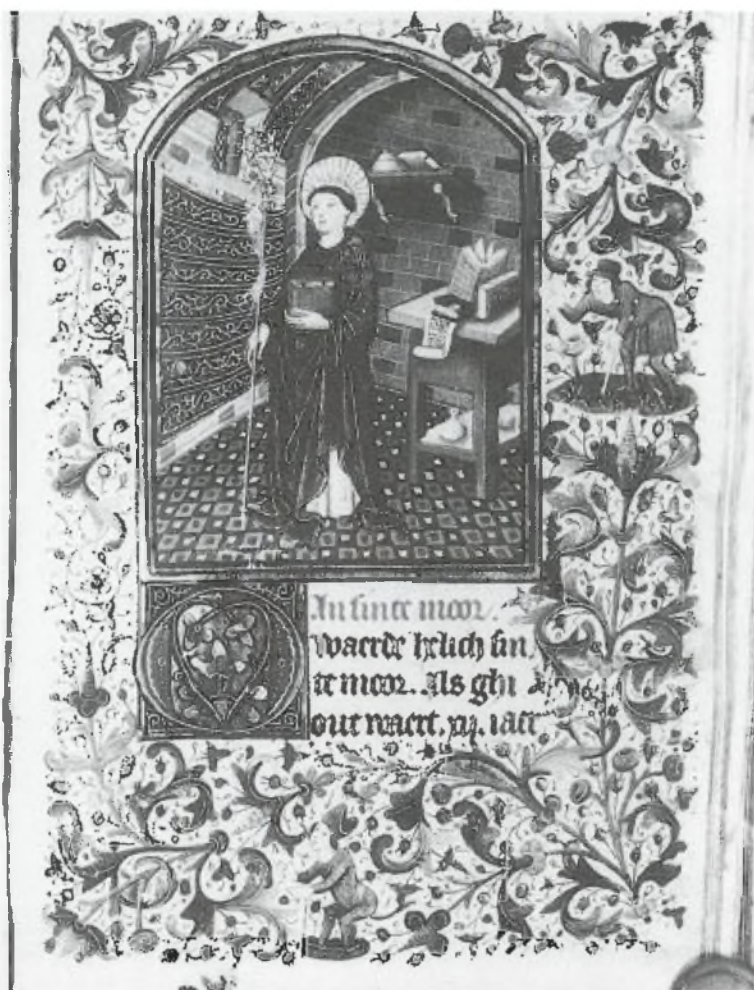 Van sinte moor.
O waerde helich sin
te moor. Als ghi
out waert. xij. iaer